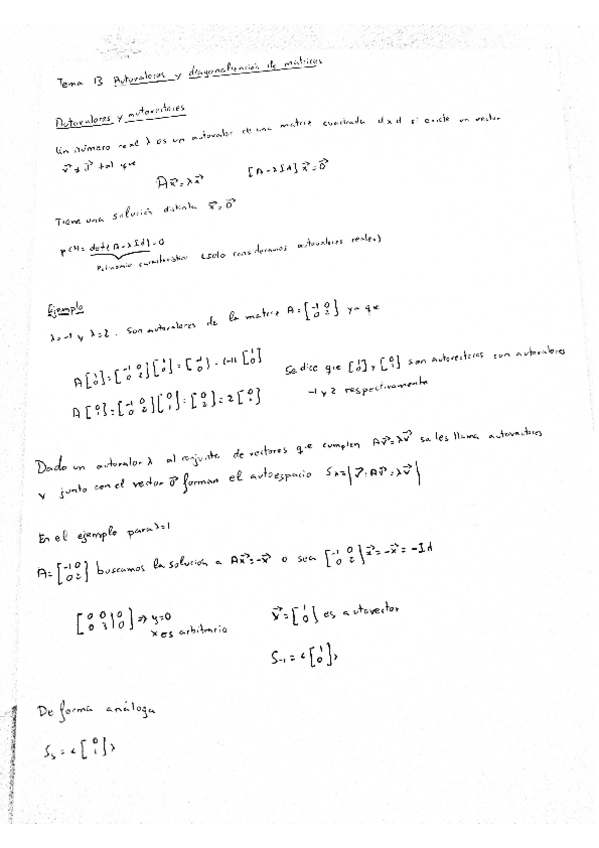 Tema 13 Autovalores y diagonalización de matrices
Autovalores y autovectores
Un número real λ es un autovalor de una matriz cuadrada dxd si existe un vector
v⃗ ≠ 0⃗ tal que
Ax⃗ = λx⃗ [A - λId]x⃗ = 0⃗
Tiene una solución distinta x⃗ = 0⃗
p(λ) = det(A - λId) = 0
Polinomio característico (solo consideramos autovalores reales)
Ejemplo
λ=-1 y λ=2. Son autovalores de la matriz A = [-1 0; 0 2] ya que
A[1; 0] = [-1 0; 0 2][1; 0] = [-1; 0] = (-1)[1; 0]
A[0; 1] = [-1 0; 0 2][0; 1] = [0; 2] = 2[0; 1]
Se dice que [1; 0] y [0; 1] son autovectores con autovalores
-1 y 2 respectivamente
Dado un autovalor λ al conjunto de vectores que cumplen Av⃗ = λv⃗ se les llama autovectores
y junto con el vector 0⃗ forman el autoespacio Sλ = {v⃗: Av⃗ = λv⃗}
En el ejemplo para λ=1
A = [-1 0; 0 2] buscamos la solución a Ax⃗ = -x⃗ o sea [-1 0; 0 2]x⃗ = -x⃗ = -Id
[0 0 | 0; 0 3 | 0] ⇒ y=0
x es arbitrario
x⃗ = [1; 0] es autovector
S-1 = <[1; 0]>
De forma análoga
= <[0; 1]>